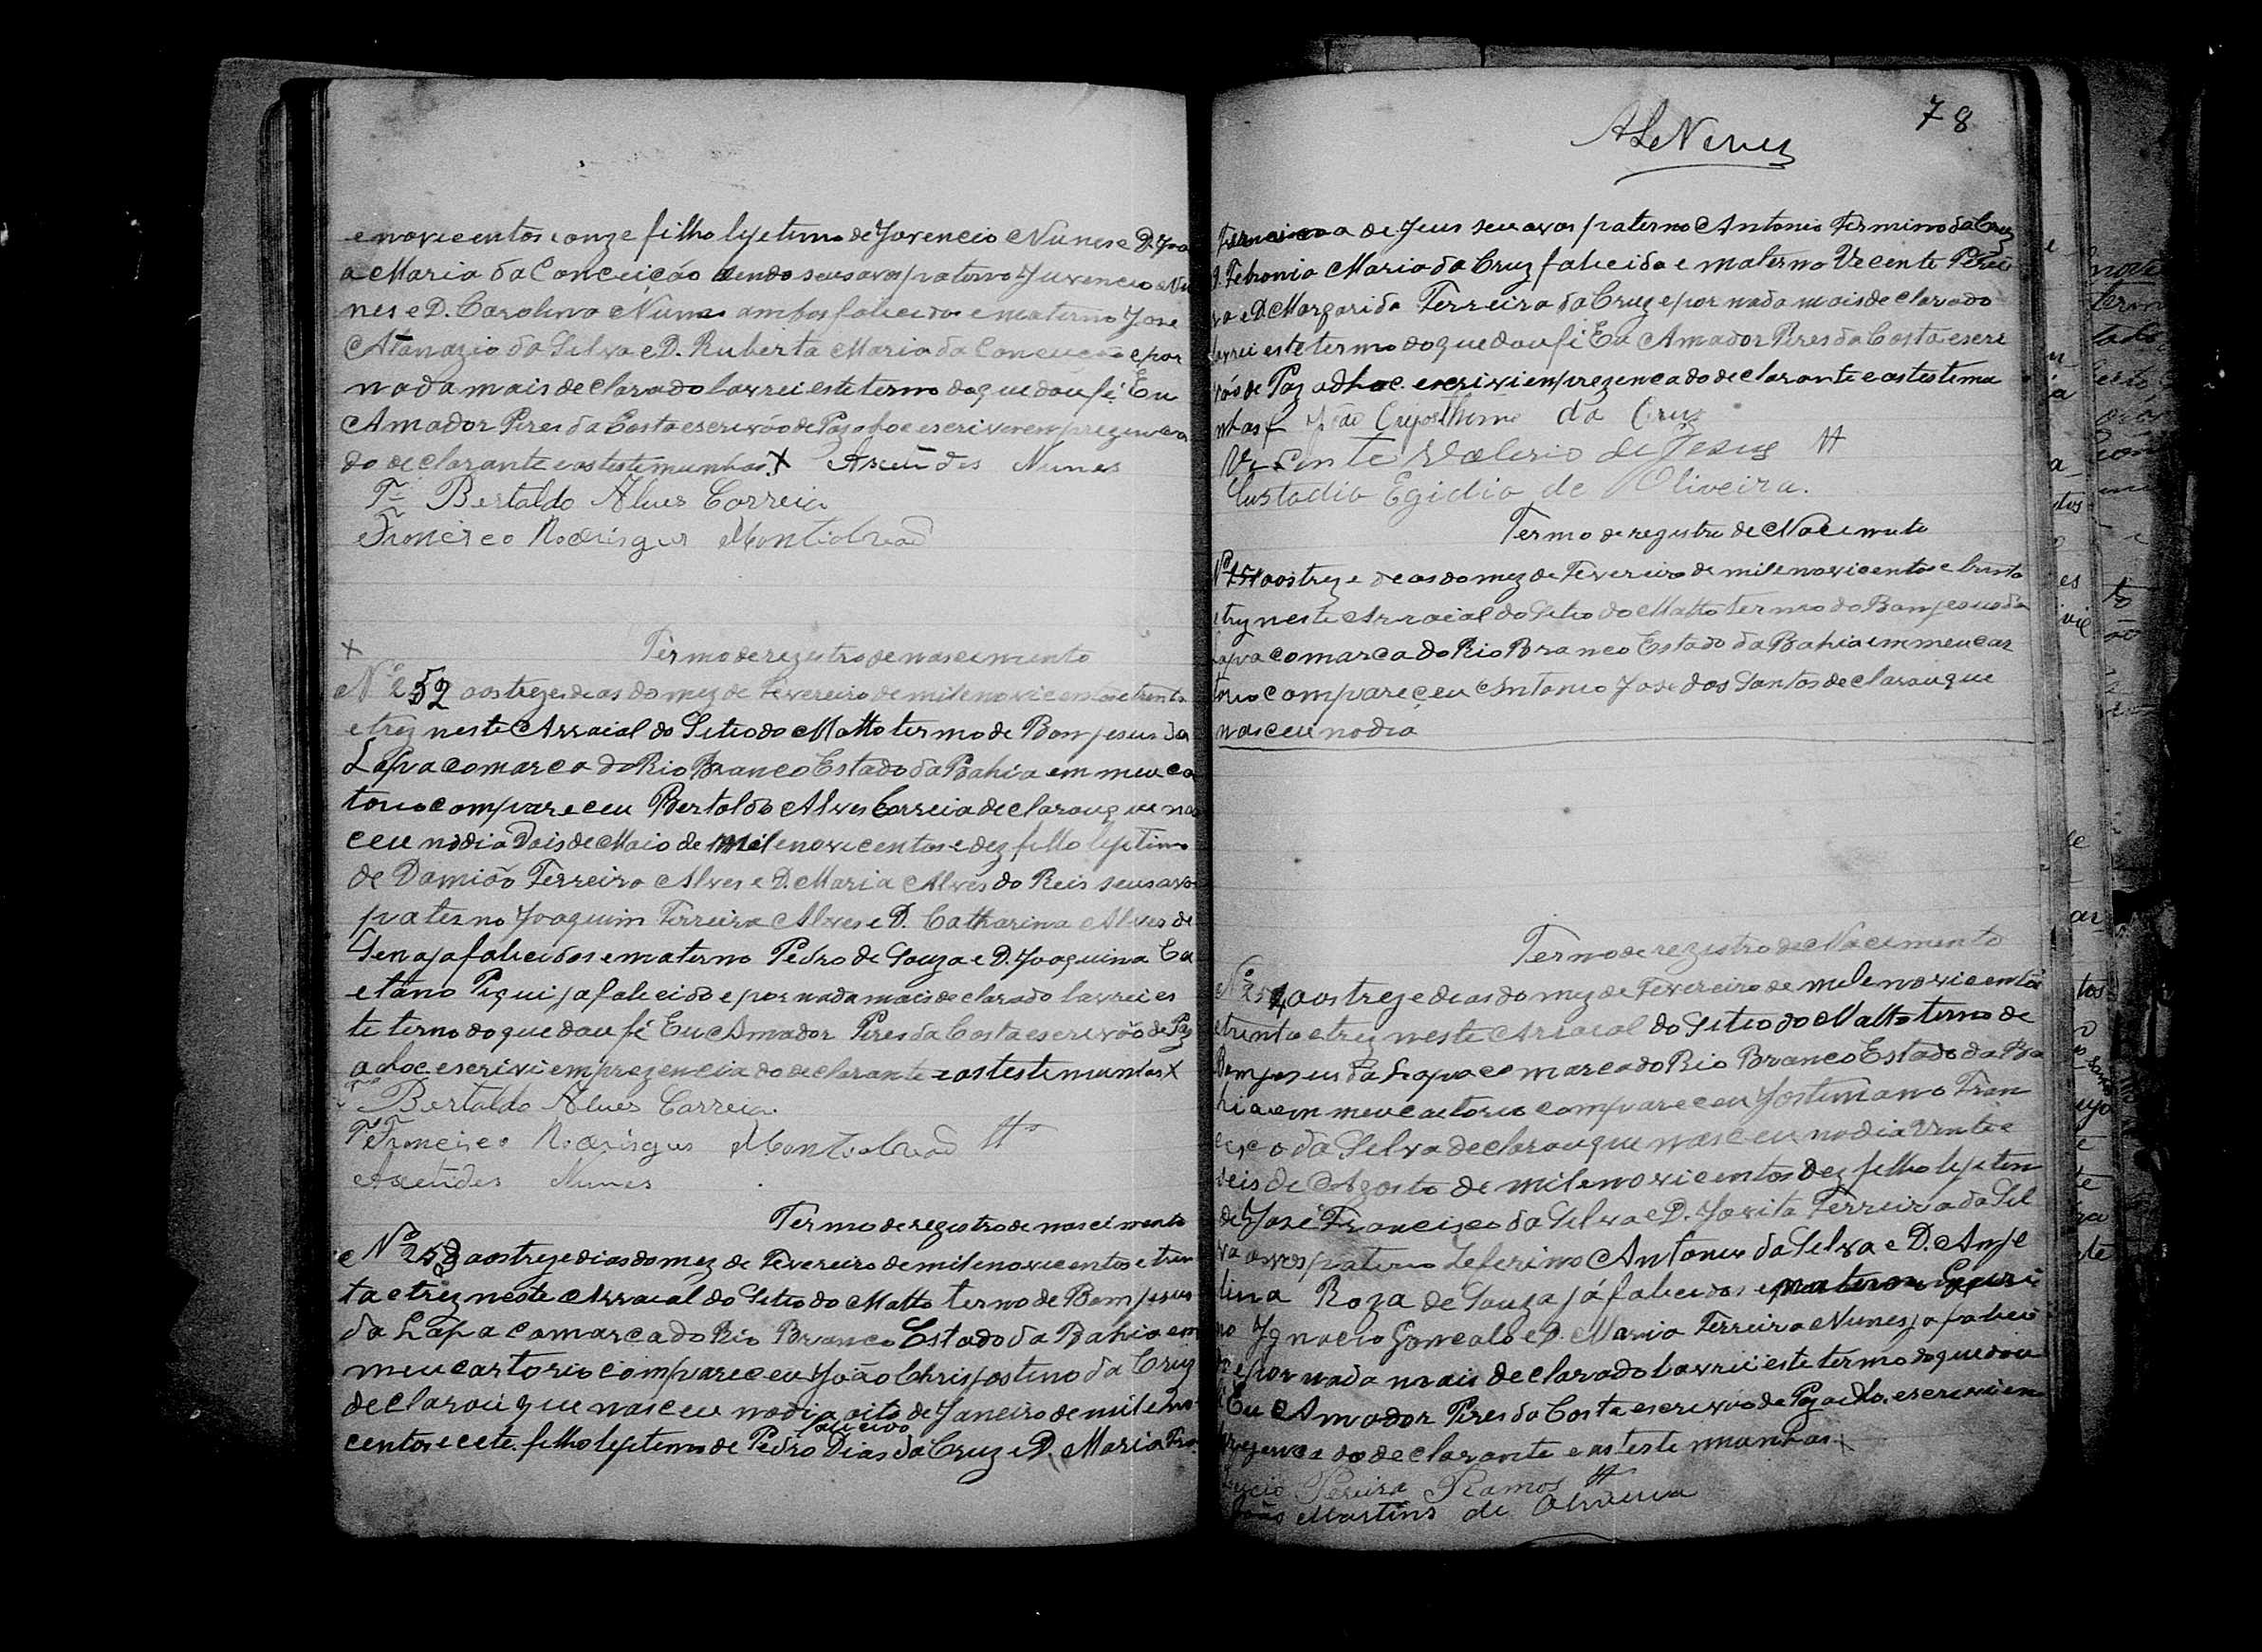 e novecentos e onze filho lejetimo de Jovencio Nunes e D. Joa
a Maria da Conceição sendo seus avos paterno Juvencio Nu
nes e D. Carolina Nunes ambos falicidos e materno Jose
Atanazio da Silva e D. Ruberta Maria da Conceição e por
nada mais declarado lavrei este termo do que dou fé Eu
Amador Pires da Costa escrivão de Paz adoc escrivi em prezenca
do declarante e as testemunhas X Nunes
Ta Bertaldo Alves Correia
Francisco Rodrigues
X
Termo de rezistro de nascimento
No 252 aos treze deas do mez de Fevereiro de mil e novicentos e trinta
e trez neste Arraial do Sitio do Matto termo de Bom jesus da
Lapa comarca do Rio Branco Estado da Bahia em meu ca
torio compareceu Bertoldo Alves Correia declarou que nas
ceu no dia Dois de Maio de mil e novicentos e dez filho lejetimo
de Damião Ferreira Alves e D. Maria Alves do Reis seus avos
paterno Joaquim Ferreira Alves e D. Catharina Alves de
Sena ja falicidos e materno Pedro de Souza e D. Joaquina Ca
etano Piqui ja falicido e por nada mais declarado lavrei es
te termo do que dou fé Eu Amador Pires da Costa escrivão de Paz
adoc escrivi em prezencia do declarante e as testemunhas X
Bertaldo Alves Correia
Francisco Rodrigues
Nunes
Termo de registro de nascimento
No 253 aos treze dias do mez de Fevereiro de mil e novicentos e trin
ta e trez neste Arraial do Sitio do Matto termo de Bom jesus
da Lapa comarca do Rio Branco Estado da Bahia em
meu cartorio compareceu João Chripostino da Cruz
declarou que nasceu no dia oito de Janeiro de mil e no
falicido
centos e cete filho lejetimo de Pedro Dias da Cruz e D. Maria
78
de Jeus seu avos paterno Antonio Firmino da Cruz
D. Febronia Maria da Cruz falicida e materno Vecente Perei
ra e D. Margarida Ferreira da Cruz e por nada mais declarado
lavrei este termo do que dou fé Eu Amador Pires da Costa escri
vão de Paz adhoc escrivi em prezenca do declarante e as testemu
nhas João da Cruz
Vesente Valerio de Jesus
Custodio Egidio de Oliveira.
Termo de registro de Nacimento
aos treze deas do mez de Fevereiro de mil e novicentos e trinta
e trez neste Arraial do Sitio do Matto termo do Bom jesus da
Lapa comarca do Rio Branco Estado da Bahia em meu car
torio compareçeu Antonio Jose dos Santos declarou que
nasceu no dia
Termo de rezistro de Nacimento
No 254 aos treze deas do mez de Fevereiro de mil e novicentos
e trinta e trez neste Arraial do Sitio do Matto termo de
Bom jesus da Lapa comarca do Rio Branco Estado da Ba
hia em meu cartorio compareceu Jostimano Fran
cisco da Silva declarou que nasceu no dia vinte e
seis de Agosto de mil e novicentos dez filho lejetim
de José Francisco da Silva e D. Jovita Ferreira da Sil
va avos paterno Seferino Antonio da Silva e D. Anje
lina Roza de Souza já falicidos e materno
Ignacio Goncalo e D. Maria Ferreira Nunes ja falici
do e por nada mais declarado lavrei este termo do que dou
fé Eu Amador Pires da Costa escrivão de Paz adho. escrivi em
prezenca do declarante e as testemunhas
Pereira Ramos
João Martins de Oliveira